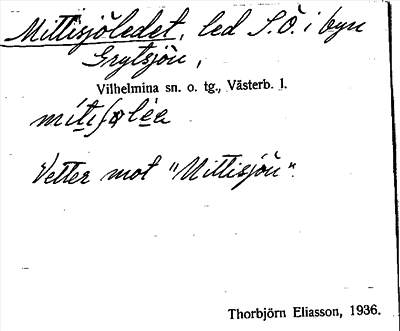 Mittisjöledet, led S.Ö. i byn
Grytsjön,
Vilhelmina sn. o. tg., Västerb. l.
Vetter mot "Mittisjön".
Thorbjörn Eliasson, 1936.